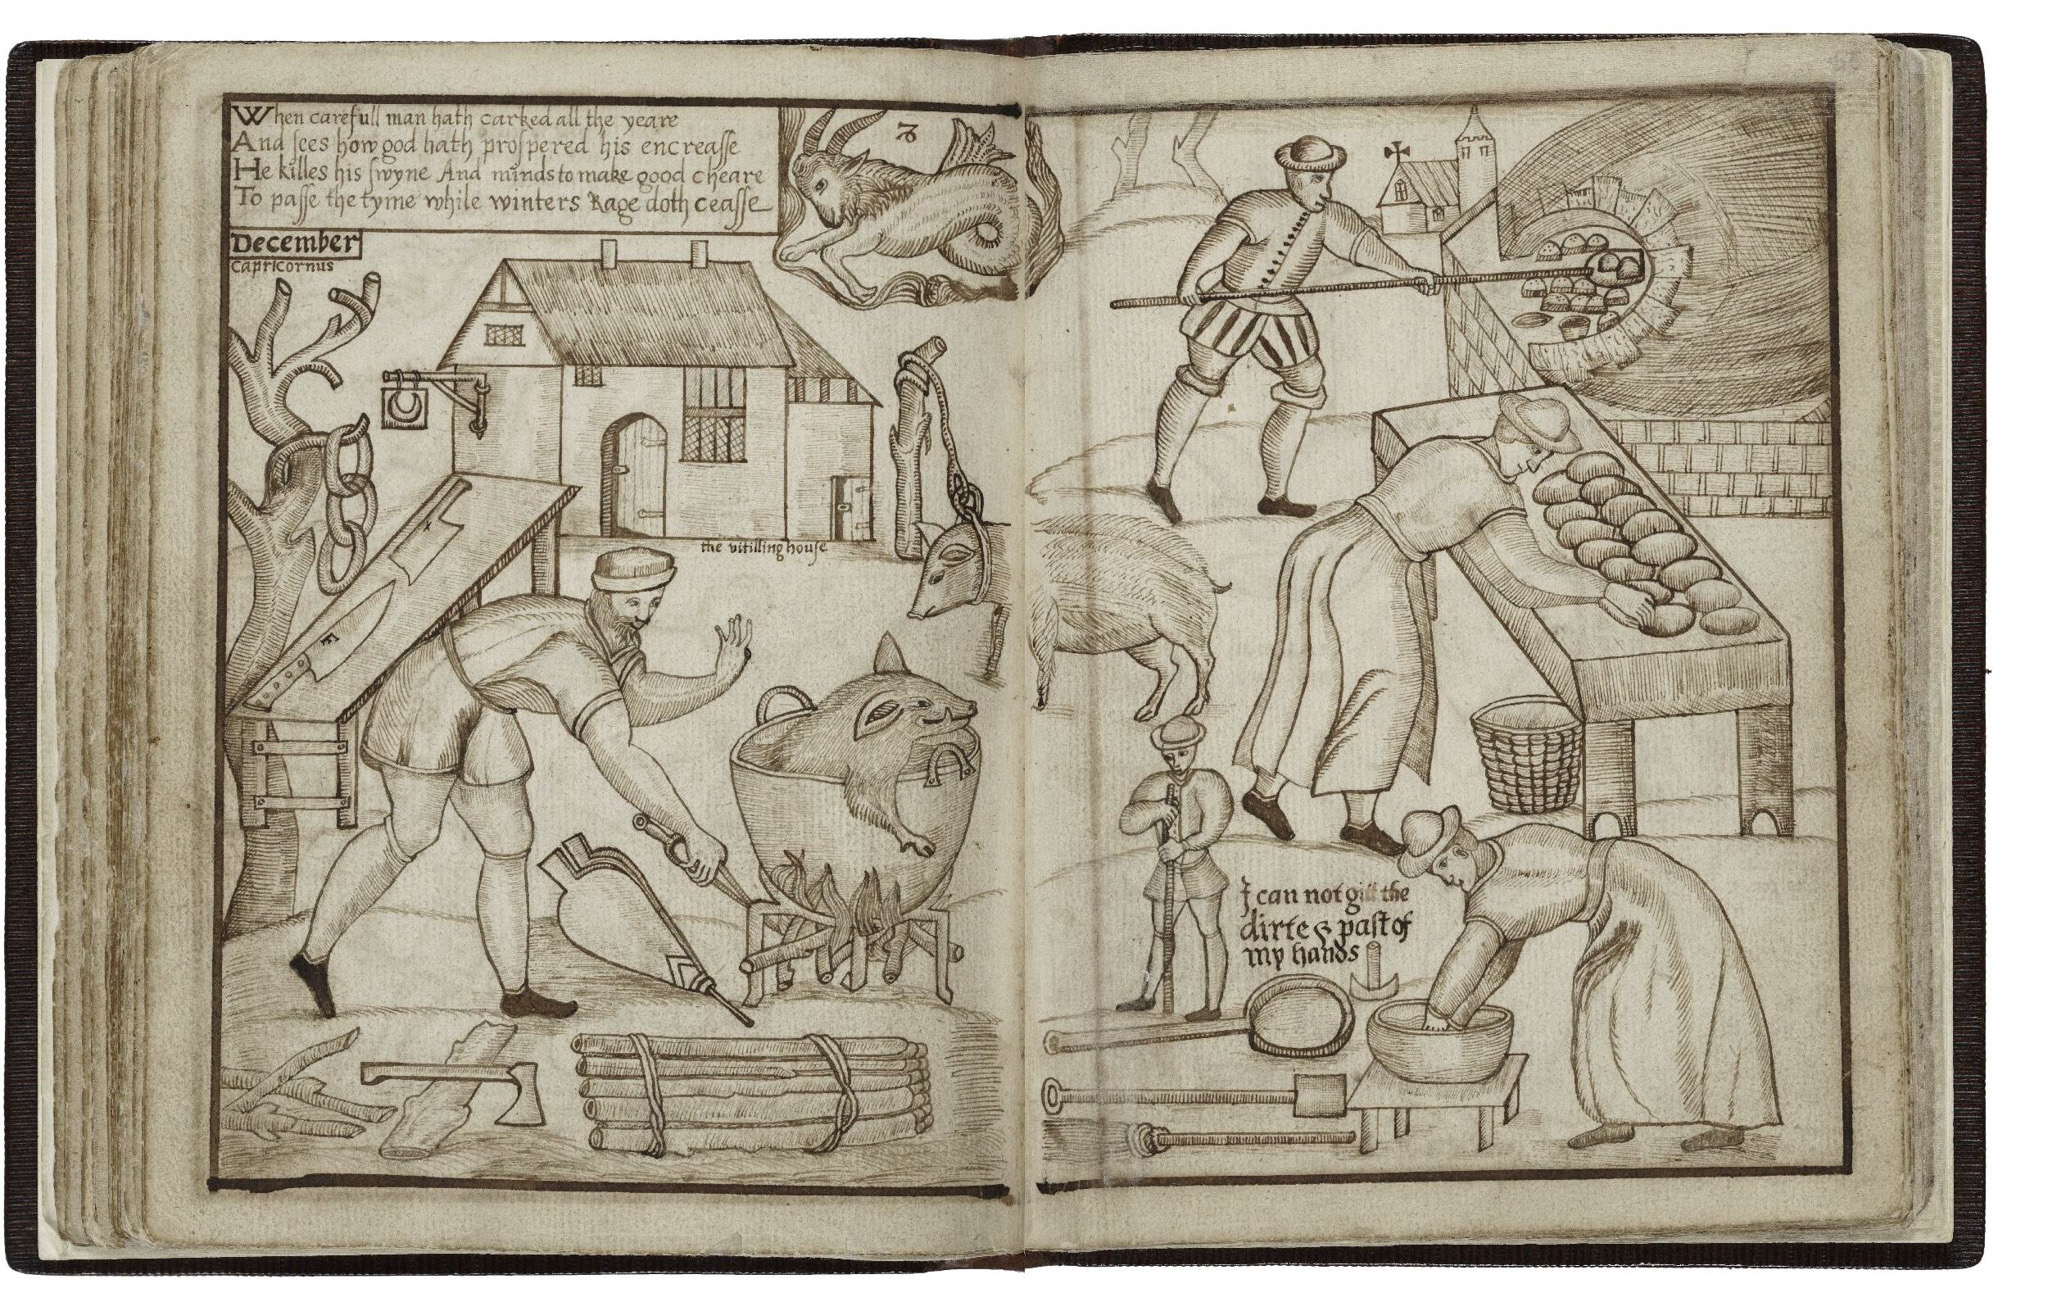 When carefull man hath carked all the yeare
And sees how god hath prospered his encreasse
He killes his swyne And minds to make good cheare
To passe the tyme while winters Rage doth ceasse
December
Capricornus
the vitilling house
I can not gitt the
dirte & past of
my hands